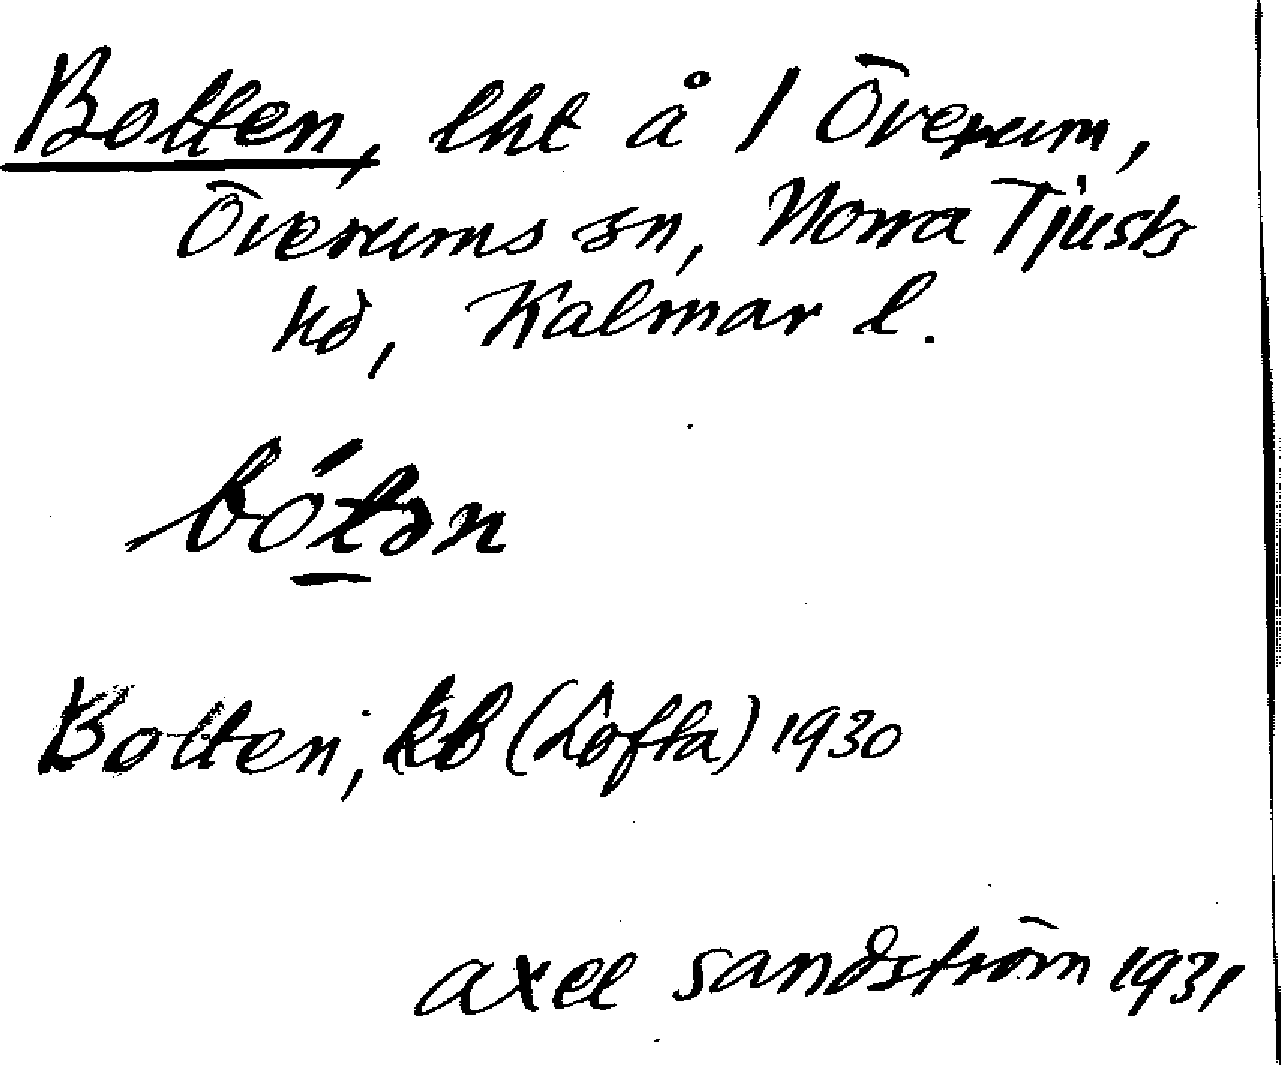 Botten, lht å 1 Överum,
Överums sn, Norra Tjusts
hd, Kalmar l.
bót̲ən
Botten, kb (Lofta) 1930
Axel Sandström 1931